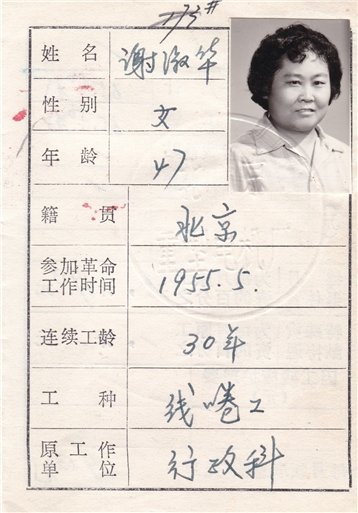 73#
姓名 谢淑华
性别 女
年龄 47
籍贯 北京
参加革命工作时间 1955.5.
连续工龄 30年
工种 线圈工
原工作单位 行政科